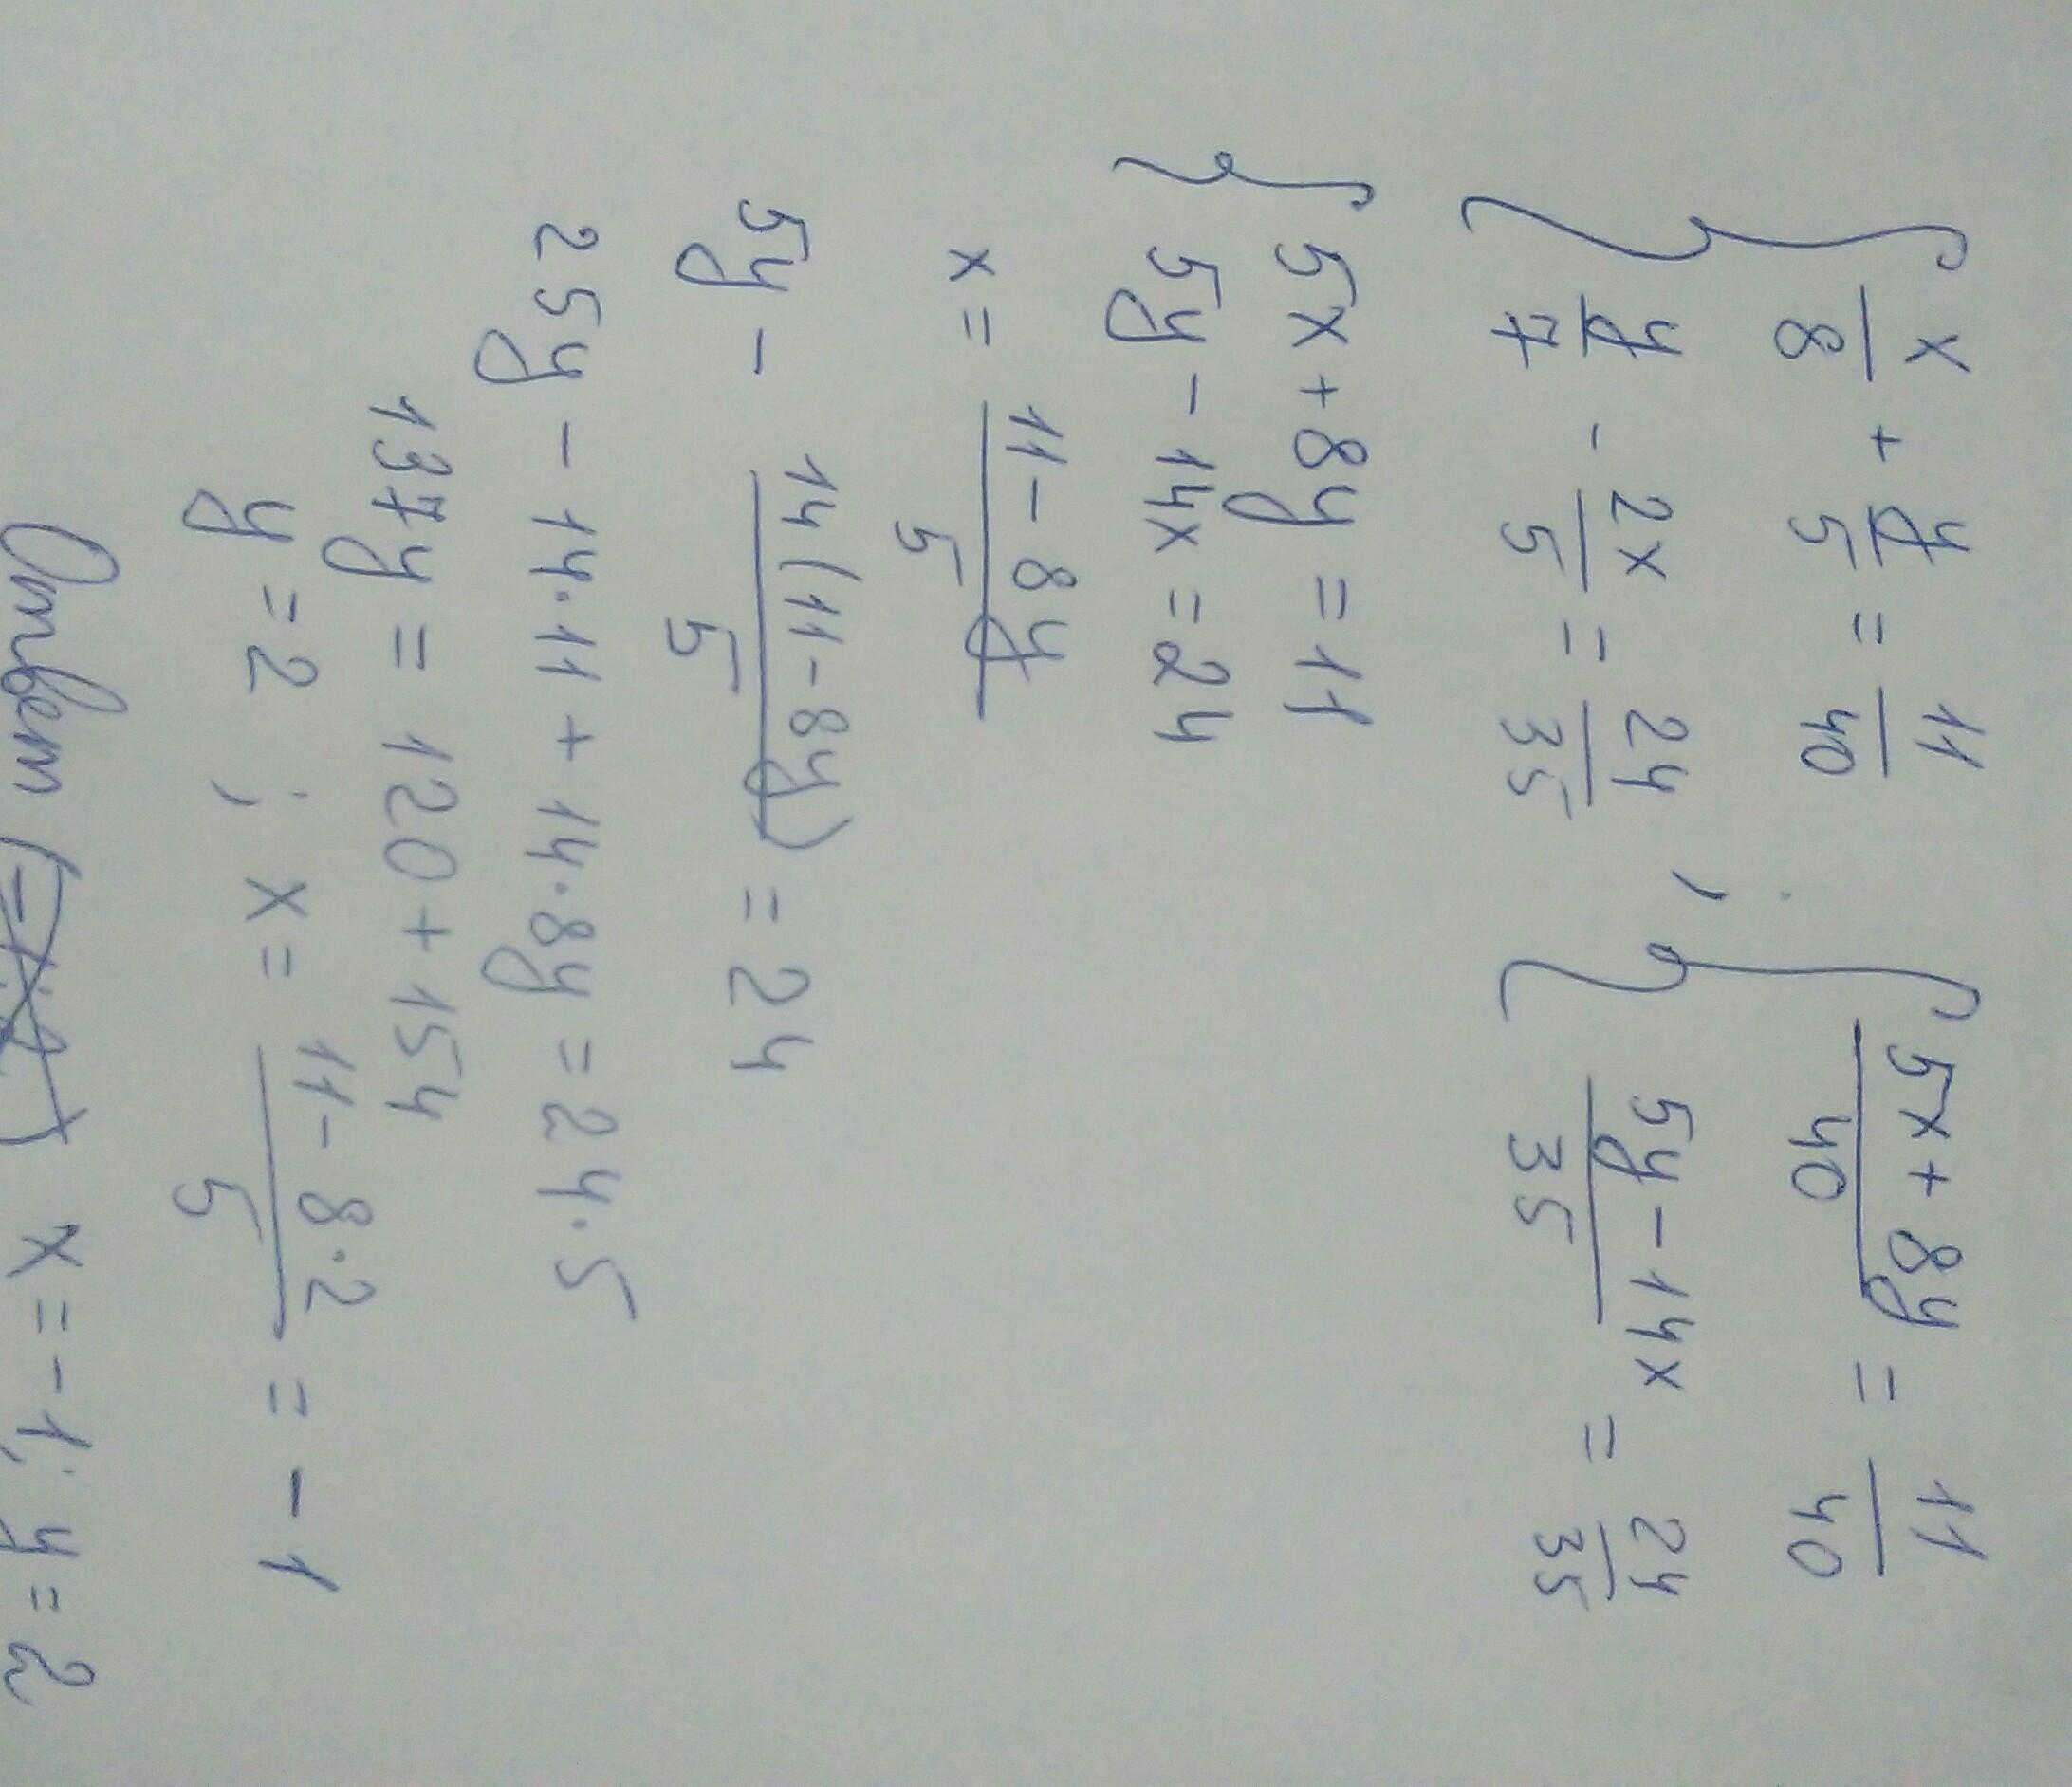 { x/8 + y/5 = 11/40 ; { (5x + 8y)/40 = 11/40
{ y/7 - 2x/5 = 24/35 { (5y - 14x)/35 = 24/35
{ 5x + 8y = 11
{ 5y - 14x = 24
x = (11 - 8y)/5
5y - 14(11 - 8y)/5 = 24
25y - 14·11 + 14·8y = 24·5
137y = 120 + 154
y = 2 ; x = (11 - 8·2)/5 = -1
Ответ x = -1; y = 2